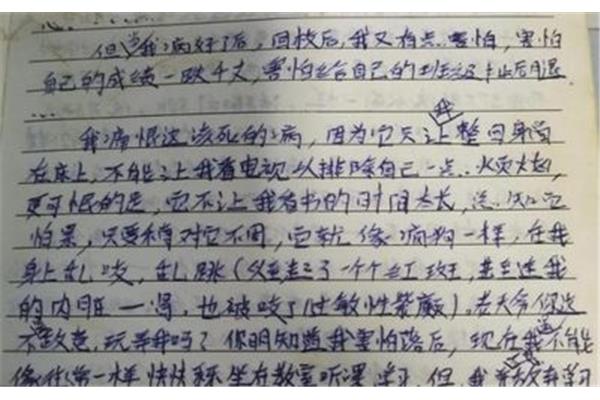 但当我病好了后,回校后,我又有点..害怕,害怕
自己的成绩一跌千丈,害怕给自己的班级扯后退.
...
我痛恨这该死的病,因为它只让我整日身留
在床上,不能让我看电视以排除自己一点..烦燥,
更可恨的是,它不让我看书的时间太长,
怕累,只要稍对它不周,它就像疯狗一样,在我
身上乱咬,乱跳(父红了一个个红斑,甚至连我
的内脏一得,也被咬了过敏性紫癜).老天爷你这
不故意,玩弄我吗?你明知道我害怕落后,现在我不能
像往常一样快快乐乐坐在教室听课学习,但,我没放弃学习